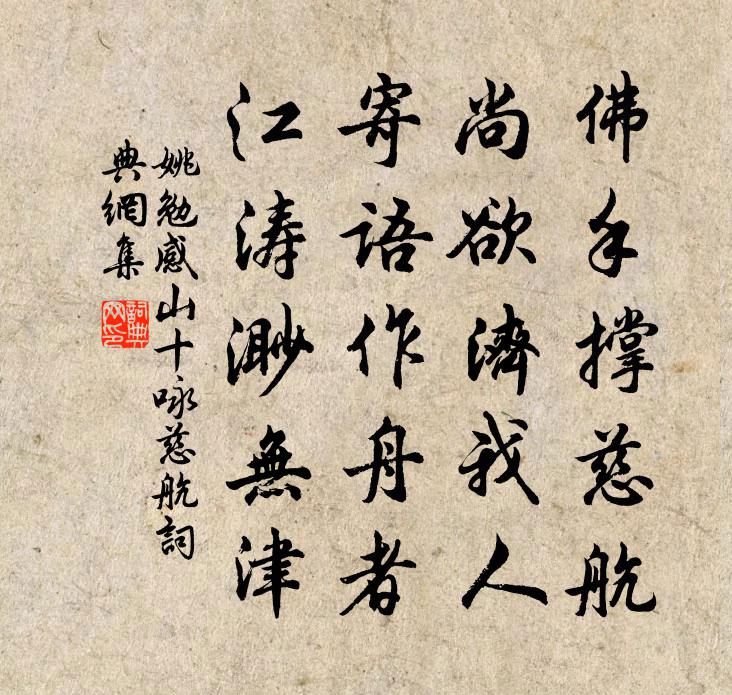 佛手撐慈航
尚欲濟我人
寄語作舟者
江濤渺無津
姚勉感山十咏慈航詞
典網集
詞典網印